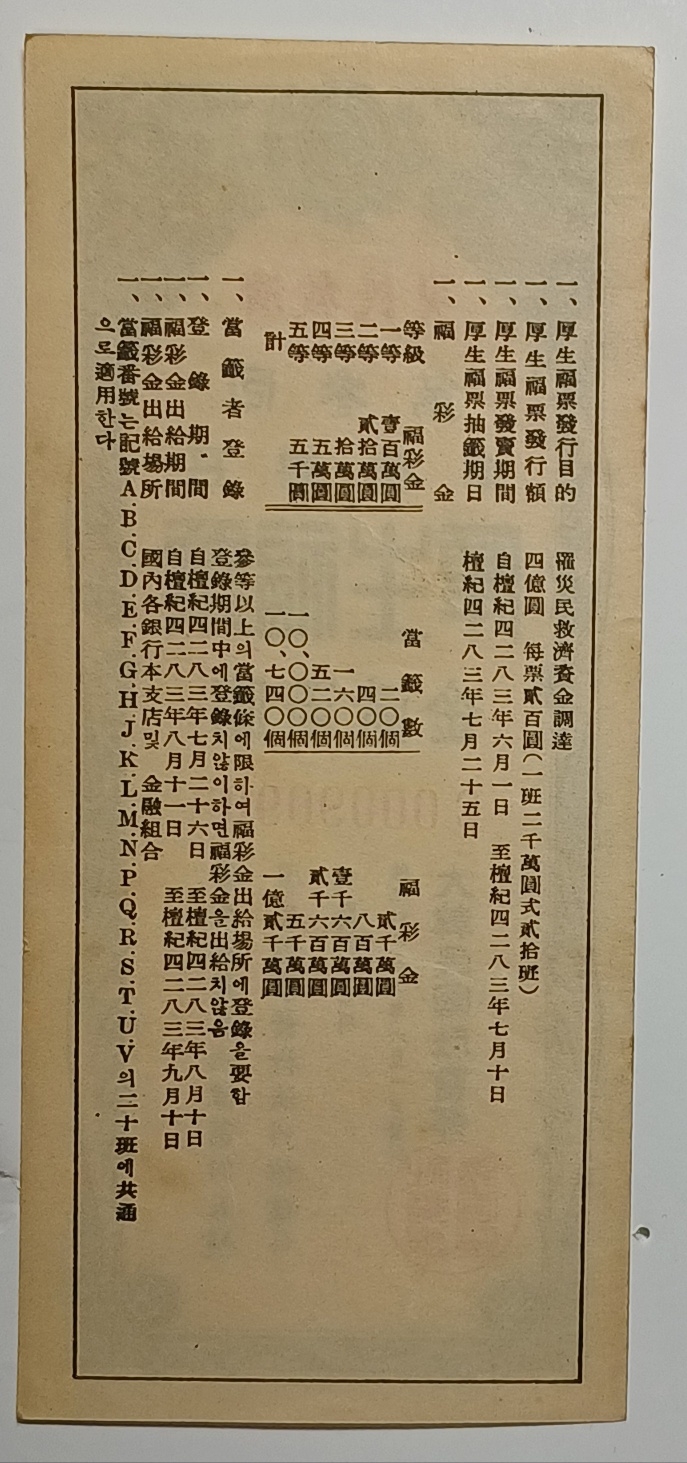 一、厚生福票發行目的　罹災民救濟資金調達
一、厚生福票發行額　四億圓　每票貳百圓(一班二千萬圓式貳拾班)
一、厚生福票發賣期間　自檀紀四二八三年六月一日　至檀紀四二八三年七月十日
一、厚生福票抽籤期日　檀紀四二八三年七月二十五日
一、福彩金
等級　福彩金　當籤數　福彩金
一等　壹百萬圓　二〇個　貳千萬圓
二等　貳拾萬圓　四〇個　八百萬圓
三等　拾萬圓　一六〇個　壹千六百萬圓
四等　五萬圓　五二〇個　貳千六百萬圓
五等　五千圓　一〇、〇〇〇個　五千萬圓
計　一〇、七四〇個　一億貳千萬圓
一、當籤者登錄　參等以上의當籤條에限하여福彩金出給場所에登錄을要함
登錄期間中에登錄치않이하면福彩金을出給치않음
一、登錄期間　自檀紀四二八三年七月二十六日　至檀紀四二八三年八月十日
一、福彩金出給期間　自檀紀四二八三年八月十一日　至檀紀四二八三年九月十日
一、福彩金出給場所　國內各銀行本支店및　金融組合
一、當籤番號는記號A.B.C.D.E.F.G.H.J.K.L.M.N.P.Q.R.S.T.U.V의二十班에共通
으로適用한다